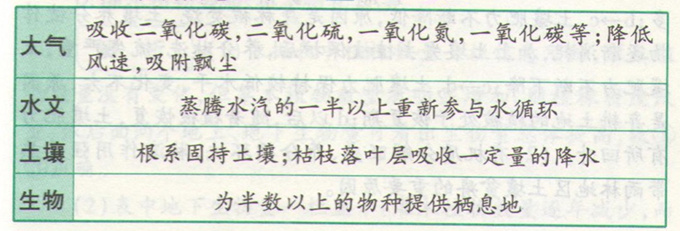 大气
吸收二氧化碳,二氧化硫,一氧化氮,一氧化碳等;降低
风速,吸附飘尘
水文
蒸腾水汽的一半以上重新参与水循环
土壤
根系固持土壤;枯枝落叶层吸收一定量的降水
生物
为半数以上的物种提供栖息地